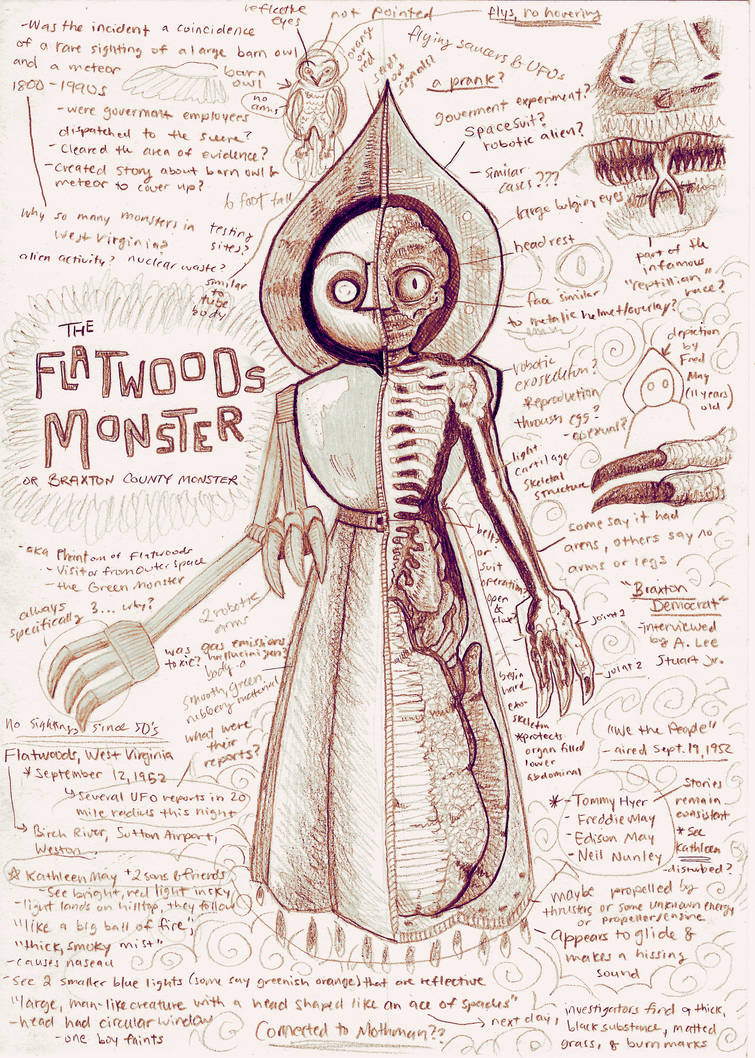 -Was the incident a coincidence
of a rare sighting of a large barn owl
and a meteor
1800-1990s
-were goverment employees
dispatched to the scene?
-Cleared the area of evidence?
-Created story about barn owl &
meteor to cover up?
reflective
eyes
not pointed
barn
owl
no
arms
orange
or
red
sends
out
signals?
flys, no hovering
flying saucers & UFOs
a prank?
goverment experiment?
spacesuit?
robotic alien?
-Similar
cases???
6 foot tall
why so many monsters in
West Virginia?
testing
sites?
alien activity? nuclear waste?
similar
tube
body
large bulging eyes
head rest
face similar
to metalic helmet/overlay?
part of the
infamous
"reptillian"
race?
THE
FLATWOODS
MONSTER
OR BRAXTON COUNTY MONSTER
depiction
by
Fred
May
(11 years
old)
robotic
exoskeleton?
Reproduction
through egg?
-asexual?
light
cartilage
skeletal
structure
some say it had
arms, others say no
arms or legs
-aka Phantom of Flatwoods
-Visitor from Outer Space
-the Green Monster
always
specifically
3... why?
2 robotic
arms
belt?
or
suit
operation?
open &
close?
joint 1
joint 2
"Braxton
Democrat"
-interviewed
by A. Lee
Stuart Jr.
was gas emissions
toxic? hallucinigen?
body-a
smooth, green,
rubbery material
what were
their
reports?
begin
hard
exo-
skeleton
*protects
organ filled
lower
abdominal
No sightings since 50's
Flatwoods, West Virginia
*September 12, 1952
Several UFO reports in 20
mile radius this night
Birch River, Sutton Airport,
Weston
"We the People"
-aired Sept. 19, 1952
*-Tommy Hyer
-Freddie May
-Edison May
-Neil Nunley
Stories
remain
consistent
*see
Kathleen
-disturbed?
*Kathleen May + 2 sons & friends
-See bright, red light in sky
-light lands on hilltop, they follow
"like a big ball of fire",
"thick, smoky mist"
-causes nauseau
-see 2 smaller blue lights (some say greenish orange) that are reflective
"large, man-like creature with a head shaped like an ace of spades"
-head had circular window
-one boy faints
Connected to Mothman??
maybe propelled by
thrusters or some unknown energy
or propeller/engine
appears to glide &
makes a hissing
sound
next day, investigators find a thick,
black substance, matted
grass, & burn marks